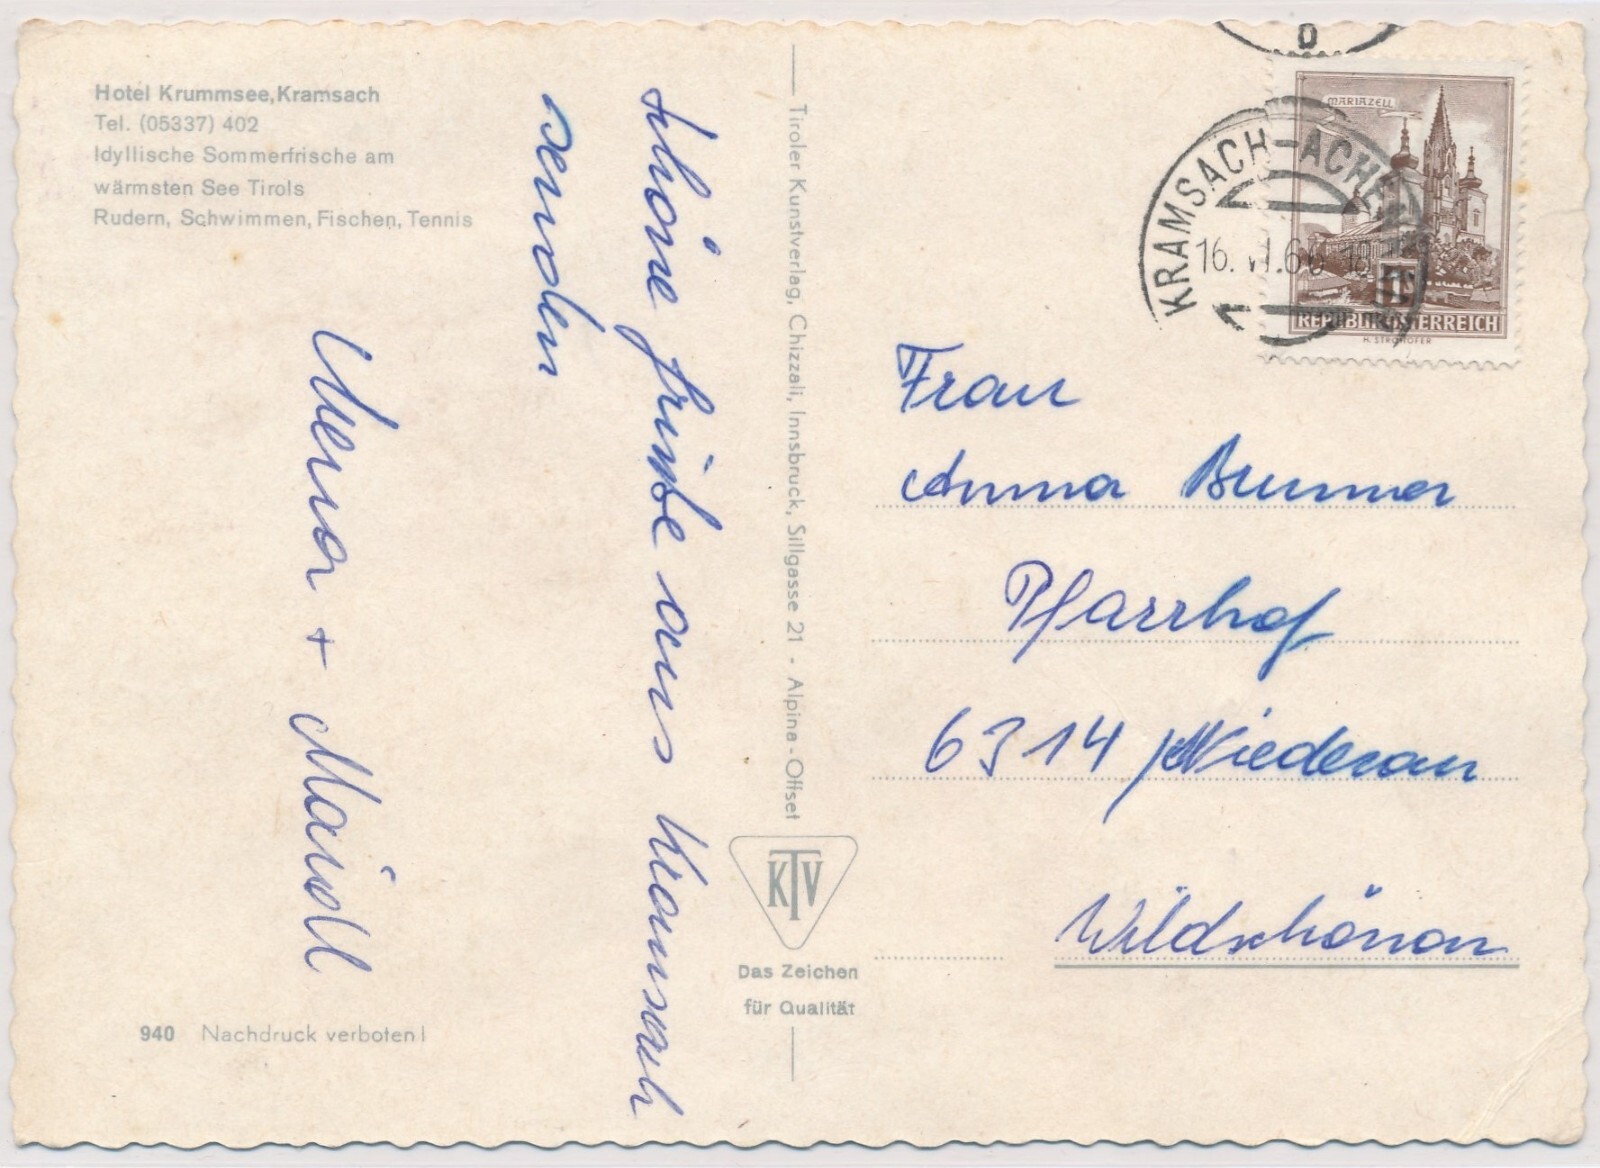 Hotel Krummsee, Kramsach
Tel. (05337) 402
Idyllische Sommerfrische am
wärmsten See Tirols
Rudern, Schwimmen, Fischen, Tennis
Schöne Grüße aus Kramsach
senden
+ Maidl
940 Nachdruck verboten!
Tiroler Kunstverlag, Chizzali, Innsbruck, Sillgasse 21 - Alpina-Offset
KTV
Das Zeichen
für Qualität
KRAMSACH-ACHEN
16. VI.66
MARIAZELL
REPUBLIK ÖSTERREICH
H. STROHOFER
Frau
Anna Brunner
Pfarrhof
6314 Niederau
Wildschönau